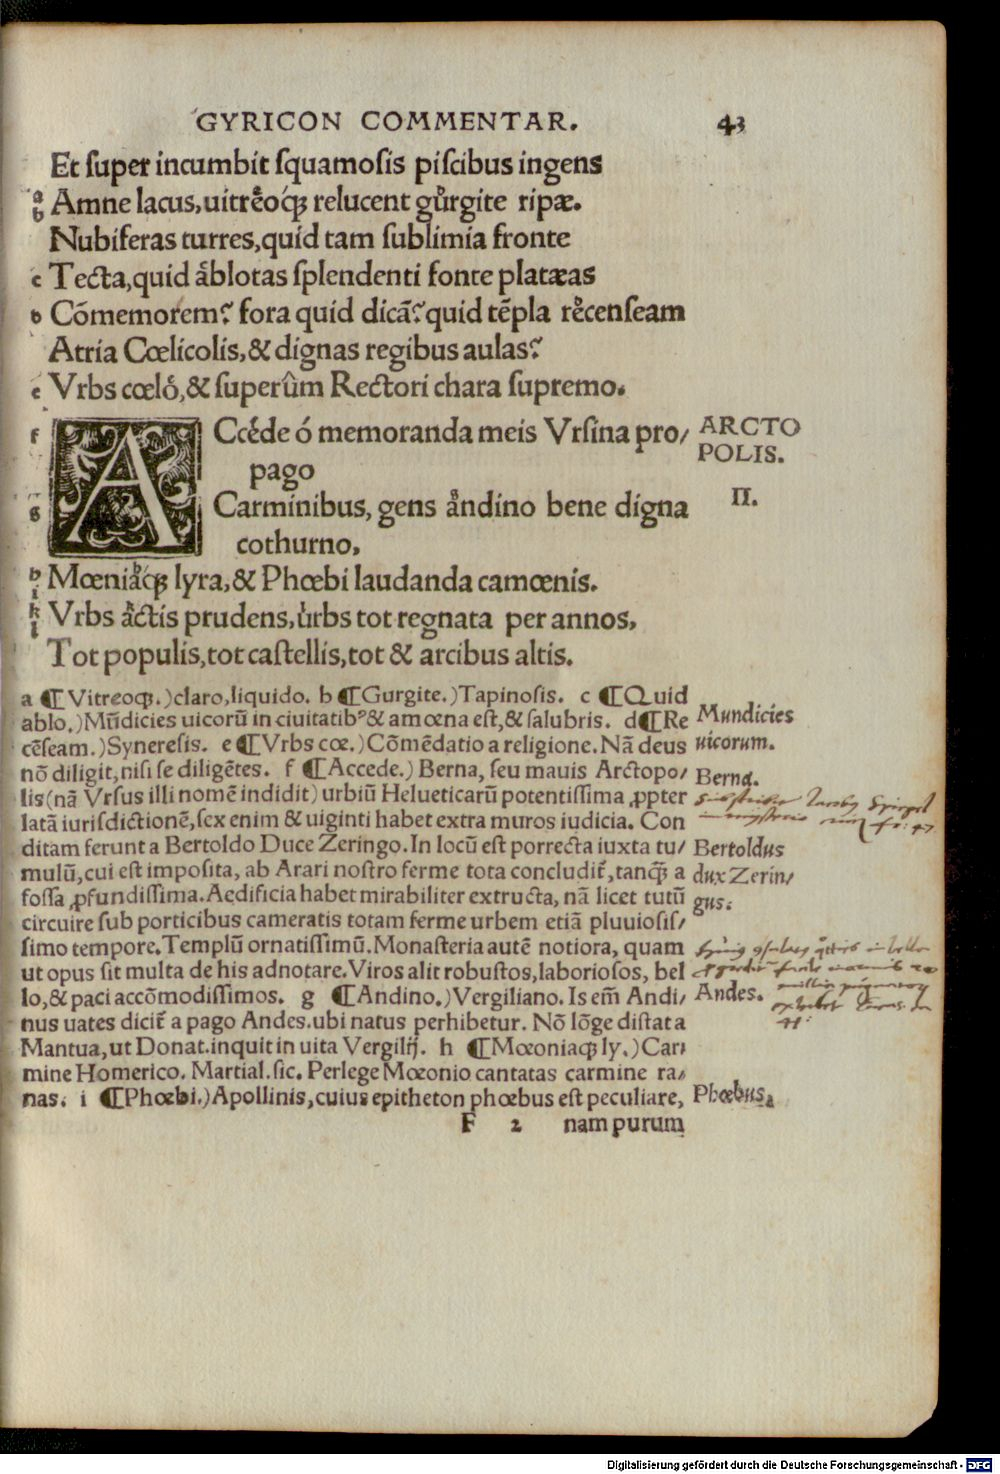 GYRICON COMMENTAR. 43
Et ſuper incumbit ſquamoſis piſcibus ingens
a
b Amne lacus,uitreoq́ꝫ relucent gurgite ripæ.
Nubiferas turres,quid tam ſublimia fronte
c Tecta,quid ablotas ſplendenti fonte platæas
d Cōmemorem? fora quid dicā? quid tēpla recenſeam
Atria Cœlicolis,& dignas regibus aulas?
e Vrbs cœló,& ſuperûm Rectori chara ſupremo.
f ACcéde ó memoranda meis Vrſina pro/
pago
ARCTO
POLIS.
II.
g Carminibus, gens andino bene digna
cothurno,
h
i Mœniaq́ꝫ lyra,& Phœbi laudanda camœnis.
k
l Vrbs actis prudens,urbs tot regnata per annos,
Tot populis,tot caſtellis,tot & arcibus altis.
a ¶Vitreoqꝫ.)claro,liquido. b ¶Gurgite.)Tapinoſis. c ¶Quid
ablo.)Mūdicies uicorū in ciuitatibꝰ & amœna eſt,& ſalubris. d¶Re
cēſeam.)Syneresis. e ¶Vrbs cœ.)Cōmēdatio a religione.Nā deus
nō diligit,niſi ſe diligētes. f ¶Accede.) Berna, ſeu mauis Arctopo/
lis(nā Vrſus illi nomē indidit) urbiū Helueticarū potentiſſima ꝓpter
latā iuriſdictionē,ſex enim & uiginti habet extra muros iudicia. Con
ditam ferunt a Bertoldo Duce Zeringo.In locū eſt porrecta iuxta tu/
mulū,cui eſt impoſita, ab Arari noſtro ferme tota concludit᷑,tanqꝫ̃ a
foſſa ꝓfundiſſima.Aedificia habet mirabiliter extructa, nā licet tutū
circuire ſub porticibus cameratis totam ferme urbem etiā pluuioſiſ/
ſimo tempore.Templū ornatiſſimū.Monaſteria autē notiora, quam
ut opus ſit multa de his adnotare.Viros alit robuſtos,laborioſos, bel
lo,& paci accōmodiſſimos. g ¶Andino.)Vergiliano. Is em̄ Andi/
nus uates dicit᷑ a pago Andes.ubi natus perhibetur. Nō lōge diſtat a
Mantua,ut Donat.inquit in uita Vergilij. h ¶Mœoniaqꝫ ly.)Car/
mine Homerico. Martial.ſic. Perlege Mœonio cantatas carmine ra/
nas. i ¶Phœbi.)Apollinis,cuius epitheton phœbus eſt peculiare,
F 2 nam purum
Mundicies
uicorum.
Berna.
Bertoldus
dux Zerin/
gus.
Andes.
Phœbus.
Digitalisierung gefördert durch die Deutsche Forschungsgemeinschaft - DFG